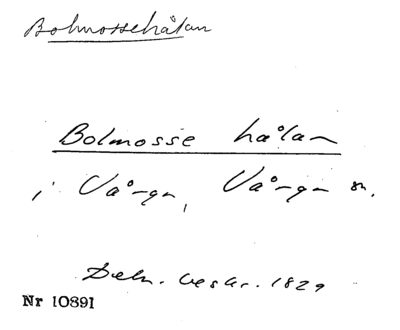 Bolmossehålan
Bolmosse hålan
i Vånga, Vånga sn.
Deln. beskr. 1829
Nr 10891